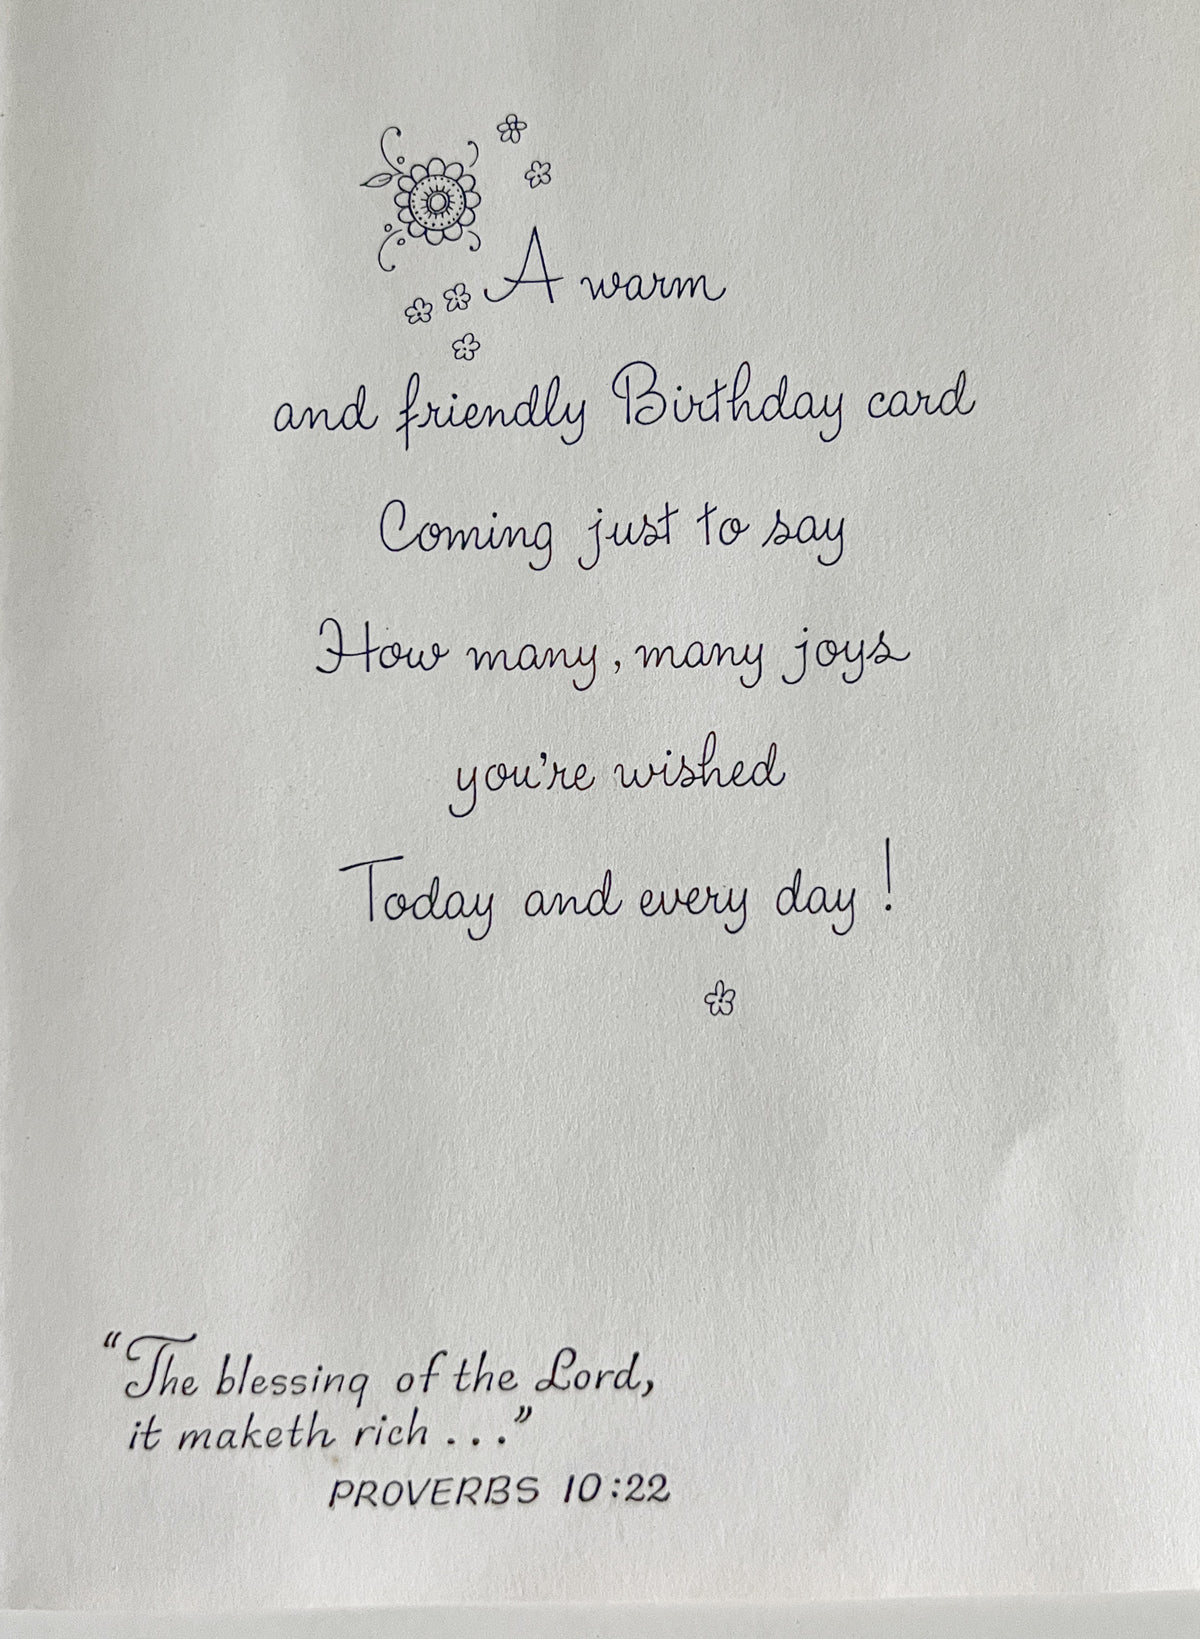 A warm
and friendly Birthday card
Coming just to say
How many, many joys
you're wished
Today and every day!
"The blessing of the Lord,
it maketh rich . . ."
PROVERBS 10:22